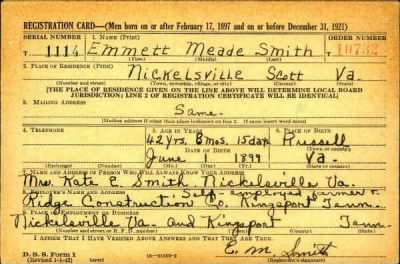 REGISTRATION CARD—(Men born on or after February 17, 1897 and on or before December 31, 1921)
SERIAL NUMBER 1. NAME (Print) ORDER NUMBER
1114 Emmett Meade Smith 10732
(First) (Middle) (Last)
2. PLACE OF RESIDENCE (Print)
Nickelsville Scott Va.
(Number and street) (Town, township, village, or city) (County) (State)
[THE PLACE OF RESIDENCE GIVEN ON THE LINE ABOVE WILL DETERMINE LOCAL BOARD
JURISDICTION; LINE 2 OF REGISTRATION CERTIFICATE WILL BE IDENTICAL]
3. MAILING ADDRESS
Same.
[Mailing address if other than place indicated on line 2. If same insert word same]
4. TELEPHONE 5. AGE IN YEARS 6. PLACE OF BIRTH
42 yrs. 8 mos. 15 days Russell
DATE OF BIRTH (Town or county)
June 1 1899 Va.
(Exchange) (Number) (Mo.) (Day) (Yr.) (State or country)
7. NAME AND ADDRESS OF PERSON WHO WILL ALWAYS KNOW YOUR ADDRESS
Mrs. Kate E. Smith Nickelsville Va.
8. EMPLOYER'S NAME AND ADDRESS Self employed farmer &
Ridge Construction Co. Kingsport Tenn.
9. PLACE OF EMPLOYMENT OR BUSINESS
Nickelsville Va. and Kingsport Tenn.
(Number and street or R. F. D. number) (Town) (County) (State)
I AFFIRM THAT I HAVE VERIFIED ABOVE ANSWERS AND THAT THEY ARE TRUE.
D. S. S. Form 1
(Revised 1-1-42) (over) 16—21630-2 E. M. Smith